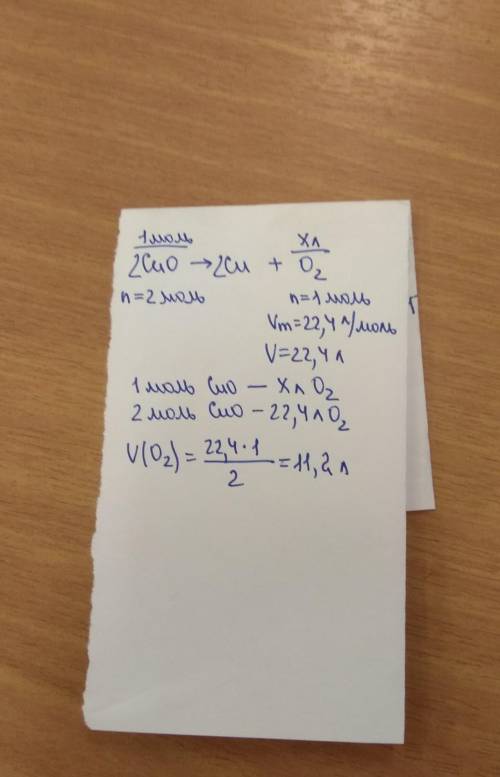 1 моль xл
2CuO → 2Cu + O₂
n = 2 моль n = 1 моль
Vm = 22,4 л/моль
V = 22,4 л
1 моль CuO — X л O₂
2 моль CuO - 22,4 л O₂
V(O₂) = 22,4 · 1 / 2 = 11,2 л